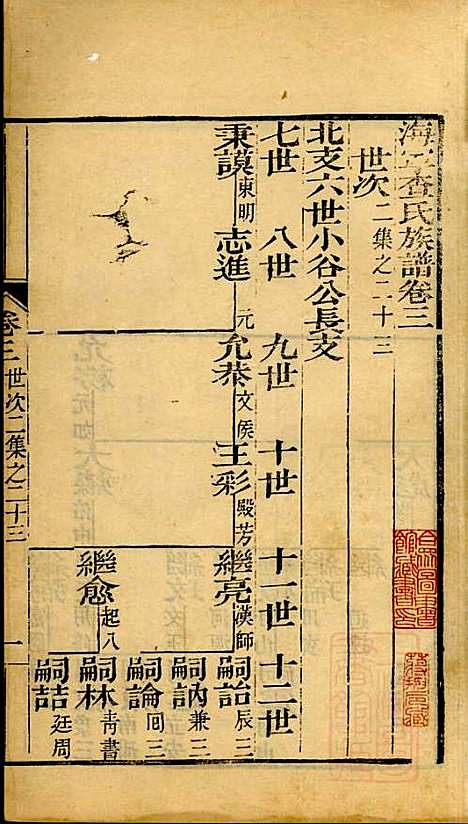 海寧查氏族譜卷三
世次二集之二十三
北支六世小谷公長支
七世 八世 九世 十世 十一世 十二世
秉謨東明 志進元 允恭文侯 王彩殿芳 繼亮漢師 嗣詒辰三
嗣訥兼三
嗣論回三
繼愈起八 嗣林青書
嗣喆廷周
卷三 世次二集之二十三 一